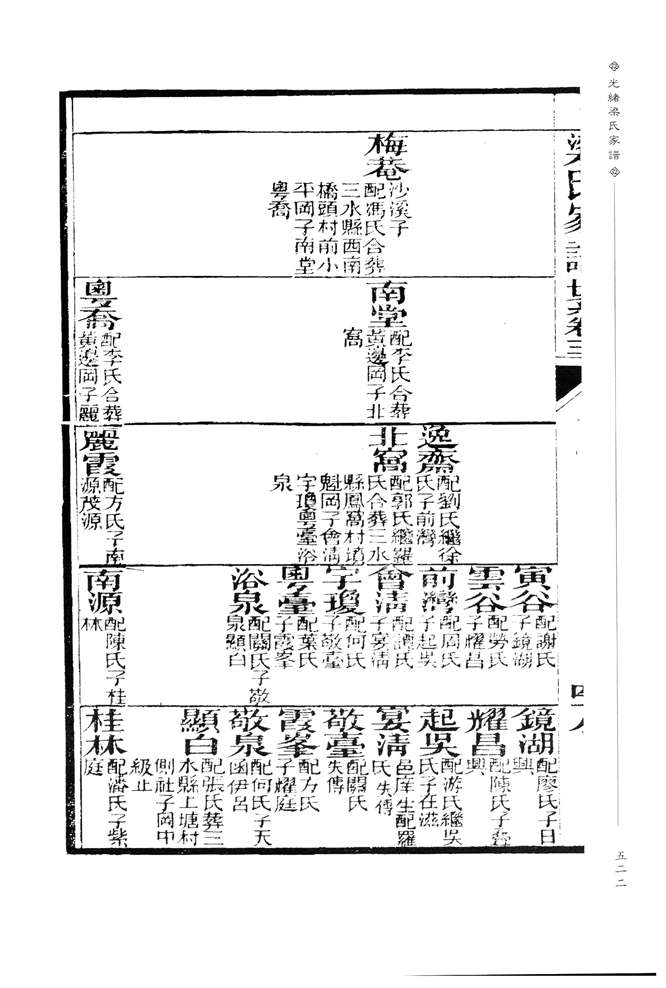 光緒梁氏家譜
五二二
梁氏家譜世系卷三
四八
梅菴
沙溪子
配馮氏合葬
三水縣西南
橋頭村前小
平岡子南堂
粤喬
南堂
配李氏合葬
黃邊岡子北
窩
粤喬
配李氏合葬
黃邊岡子麗
逸齋
配劉氏繼徐
氏子前灣
北窩
配郭氏繼羅
氏合葬三水
縣鳳窩村墳
魁岡子會清
宇瓊粤臺浴
泉
麗霞
配方氏子南
源茂源
寅谷
配謝氏
子鏡湖
雲谷
配勞氏
子耀昌
前灣
配周氏
子起吳
會清
配譚氏
子宴清
宇瓊
配何氏
子敬臺
粤臺
配葉氏
子霞峯
浴泉
配關氏子敬
泉顯白
南源
配陳氏子桂
林
鏡湖
配廖氏子日
興
耀昌
配陳氏子
興
起吳
配游氏繼吳
氏子在滋
宴清
邑庠生配羅
氏失傳
敬臺
配關氏
失傳
霞峯
配方氏
子耀庭
敬泉
配何氏子天
函伊呂
顯白
配張氏葬三
水縣上塘村
側社子岡中
級止
桂林
配潘氏子紫
庭